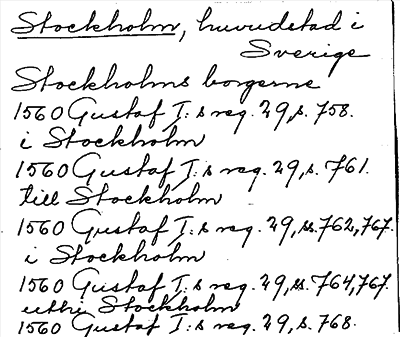 Stockholm, huvudstad i
Sverige
Stockholms borgerne
1560 Gustaf I:s reg. 29, s. 758.
i Stockholm
1560 Gustaf I:s reg. 29, s. 761.
till Stockholm
1560 Gustaf I:s reg. 29, ss. 762, 767.
i Stockholm
1560 Gustaf I:s reg. 29, ss. 764, 767.
uthi Stockholm
1560 Gustaf I:s reg. 29, s. 768.